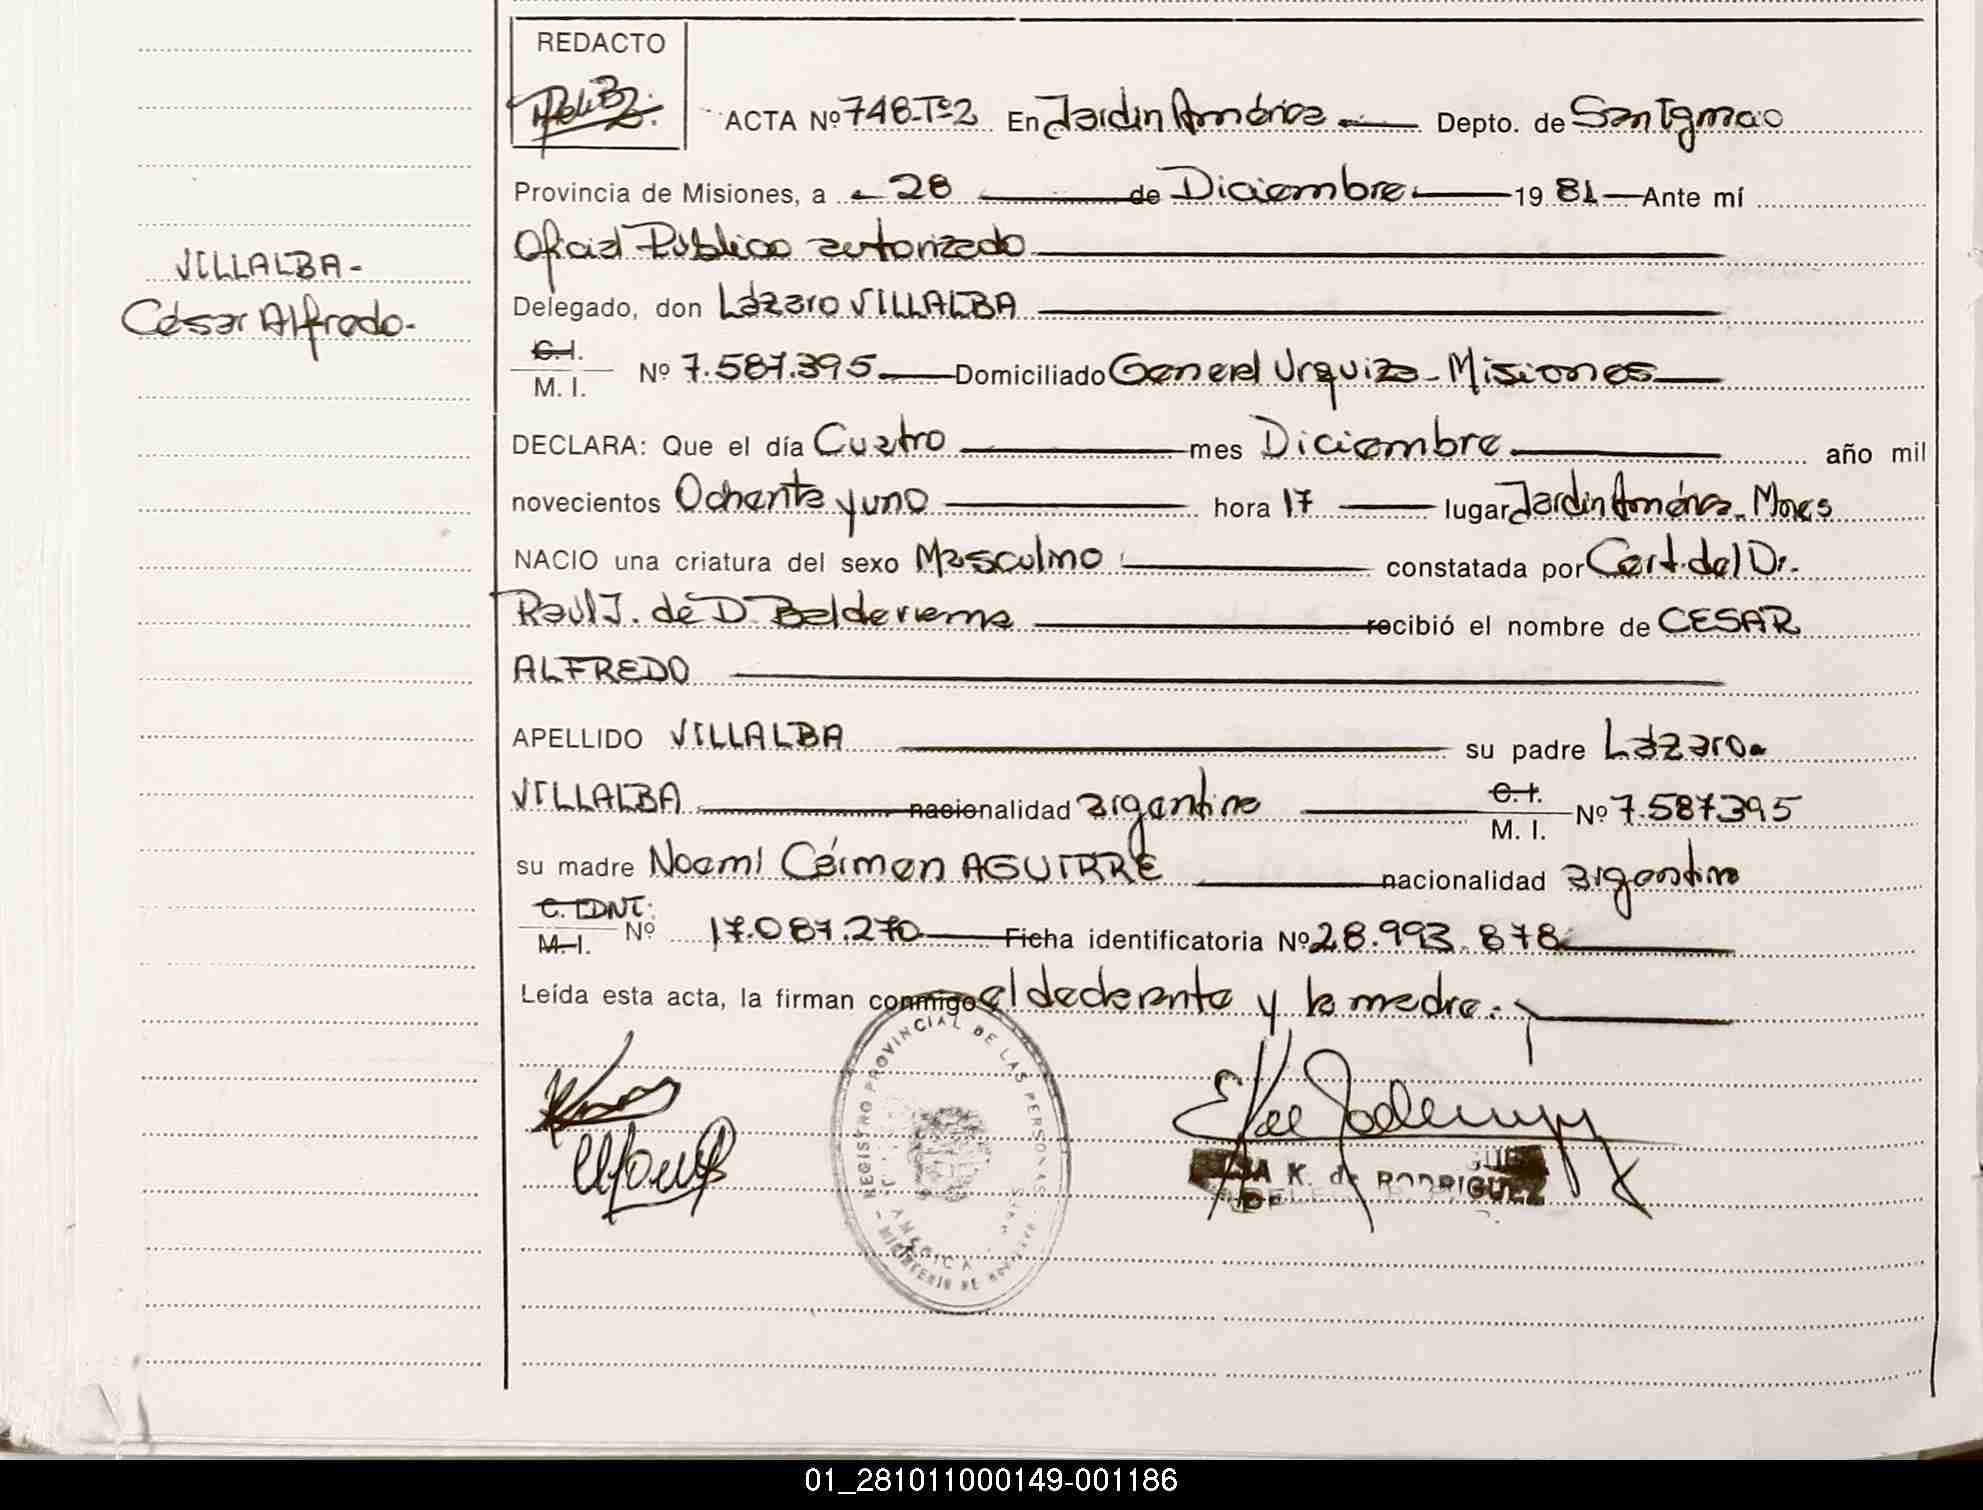 REDACTO
ACTA Nº 748-Tº2 En Jardín América Depto. de San Ignacio
Provincia de Misiones, a 28 de Diciembre 19 81 Ante mí
Oficial Público autorizado
VILLALBA-
Delegado, don Lázaro VILLALBA
César Alfredo.
C.I.
M. I. Nº 7.587.395 Domiciliado General Urquiza - Misiones
DECLARA: Que el día Cuatro mes Diciembre año mil
novecientos Ochenta y uno hora 17 lugar Jardín América. Mnes
NACIO una criatura del sexo Masculino constatada por Cert. del Dr.
Raúl J. de D. Balderrama recibió el nombre de CESAR
ALFREDO
APELLIDO VILLALBA su padre Lázaro
VILLALBA nacionalidad argentino C.I. M. I. Nº 7.587.395
su madre Noemí Cármen AGUIRRE nacionalidad argentina
M.I. Nº 17.087.270 Ficha identificatoria Nº 28.993.878
Leída esta acta, la firman conmigo el declarante y la madre.
REGISTRO PROVINCIAL DE LAS PERSONAS
AMERICA
K. de RODRIGUEZ
01_281011000149-001186